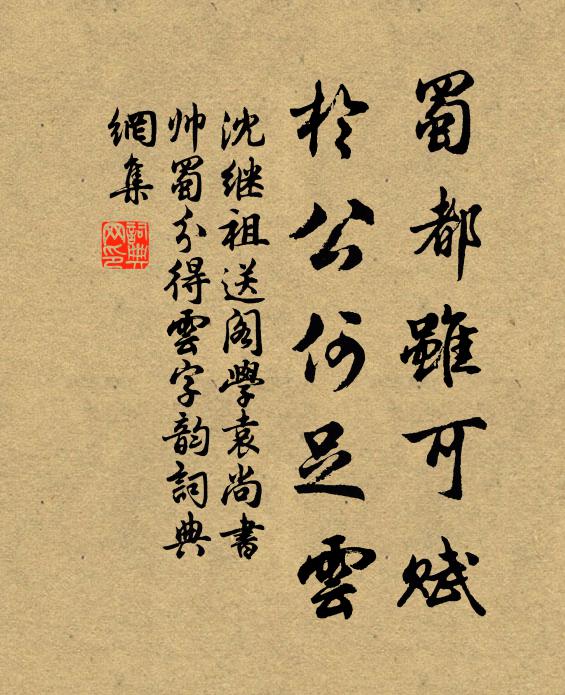 蜀都雖可赋
於公何足雲
沈继祖送阁學袁尚書
帅蜀分得雲字韵詞典
網集
詞典
网印